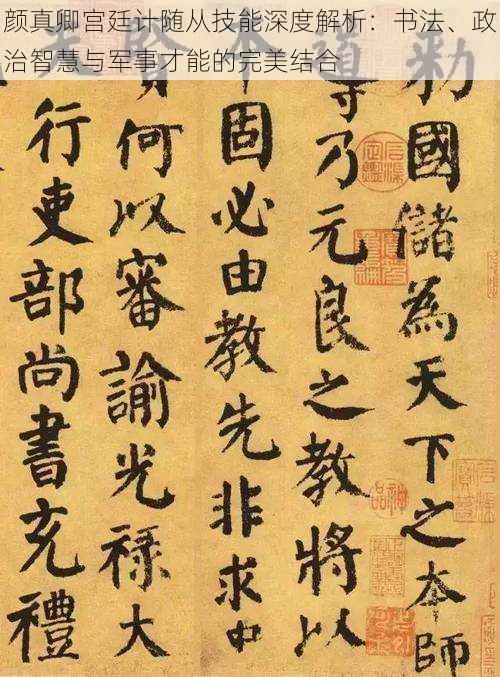 颜真卿宫廷计随从技能深度解析：书法、政
治智慧与军事才能的完美结合
國儲為天下之本師
導乃元良之教將以
本固必由教先非求
何以審諭光祿大
夫行吏部尚書充禮